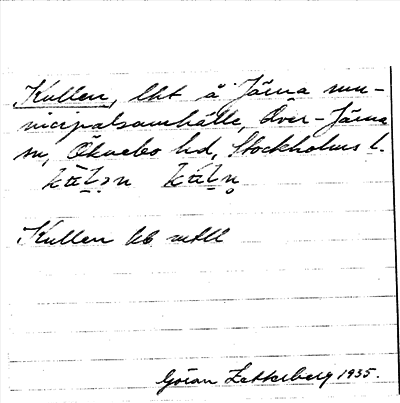 Kullen, lht å Järna mu-
nicipalsamhälle, Över-Järna
sn, Öknebo hd, Stockholms l.
Kullen
Göran Zetterberg 1935.